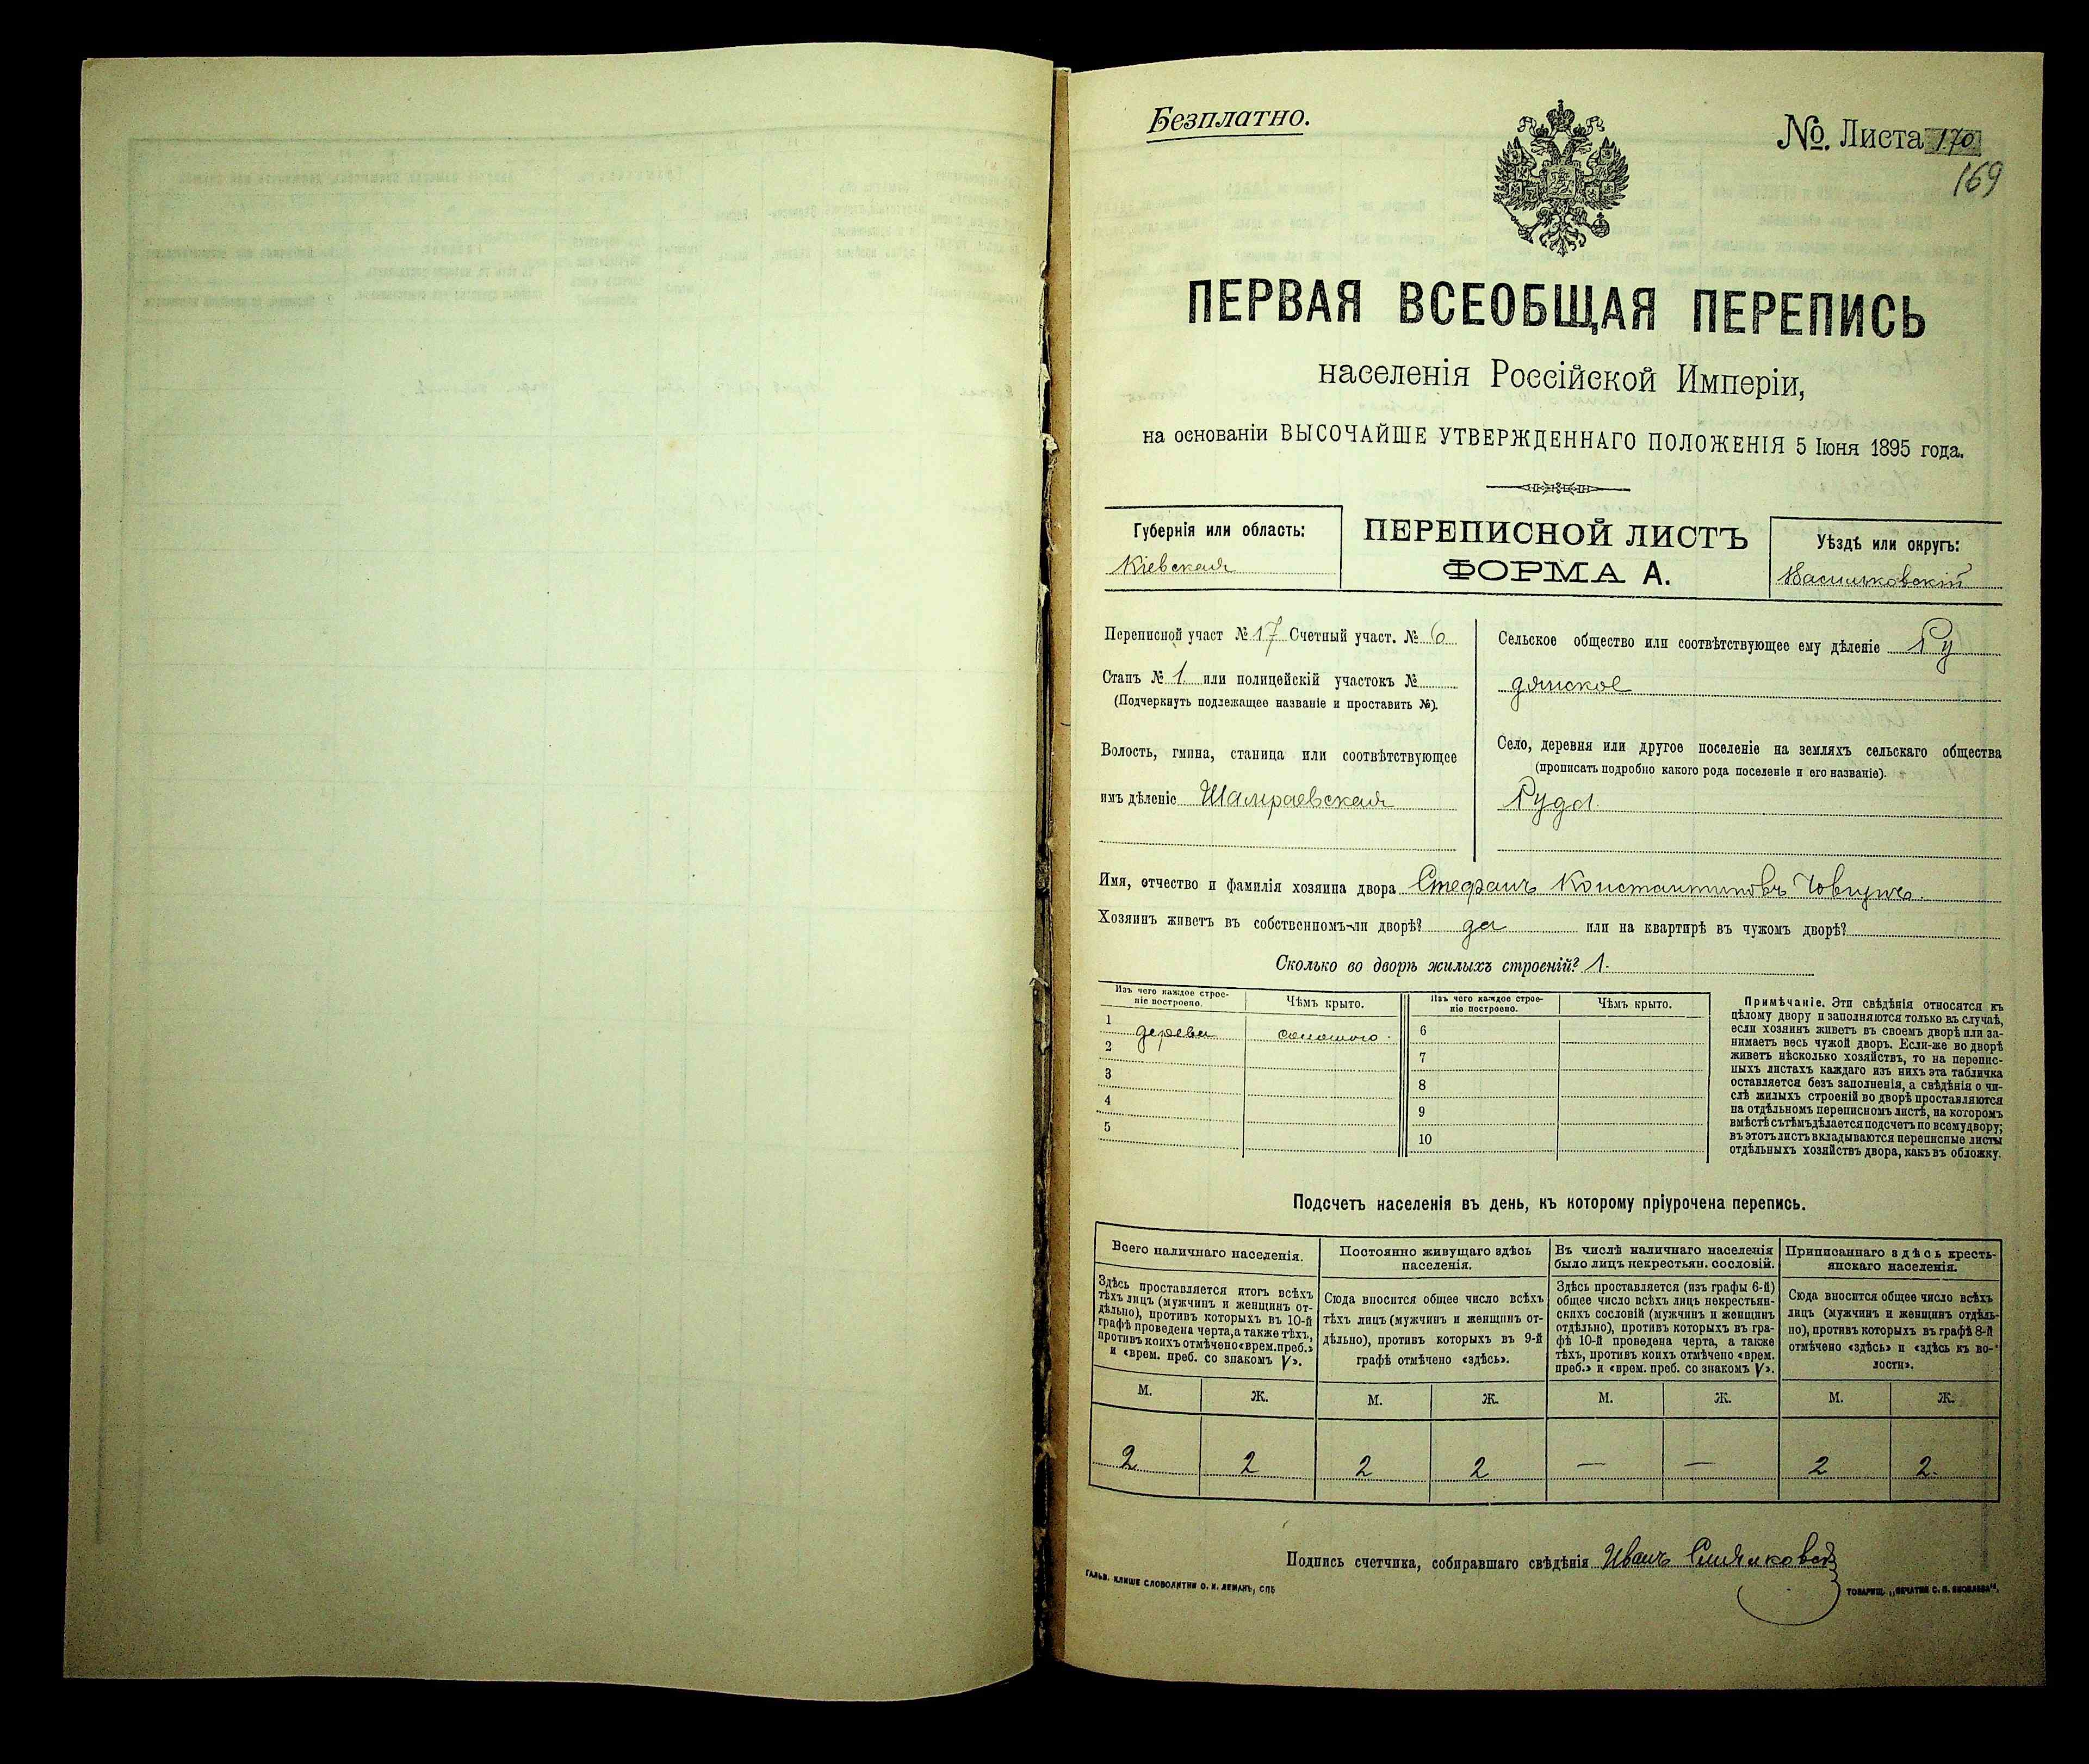 Безплатно.
№. Листа 170
169
ПЕРВАЯ ВСЕОБЩАЯ ПЕРЕПИСЬ
населенія Россійской Имперіи,
на основаніи ВЫСОЧАЙШЕ УТВЕРЖДЕННАГО ПОЛОЖЕНІЯ 5 Іюня 1895 года.
Губернія или область:
Кіевская
ПЕРЕПИСНОЙ ЛИСТЪ
ФОРМА А.
Уѣздъ или округъ:
Васильковскій
Переписной участ № 17 Счетный участ. № 6
Станъ № 1 или полицейскій участокъ №
(Подчеркнуть подлежащее названіе и проставить №).
Волость, гмина, станица или соотвѣтствующее
имъ дѣленіе Шамраевская
Сельское общество или соотвѣтствующее ему дѣленіе Ру
дянское
Село, деревня или другое поселеніе на земляхъ сельскаго общества
(прописать подробно какого рода поселеніе и его названіе).
Руда.
Имя, отчество и фамилія хозяина двора Стефанъ Константиновъ Човгунъ.
Хозяинъ живетъ въ собственномъ-ли дворѣ? да или на квартирѣ въ чужомъ дворѣ?
Сколько во дворѣ жилыхъ строеній? 1.
Изъ чего каждое строе-
ніе построено.
Чѣмъ крыто.
Изъ чего каждое строе-
ніе построено.
Чѣмъ крыто.
1 дерева соломою.
2
3
4
5
6
7
8
9
10
Примѣчаніе. Эти свѣдѣнія относятся къ
цѣлому двору и заполняются только въ случаѣ,
если хозяинъ живетъ въ своемъ дворѣ или за-
нимаетъ весь чужой дворъ. Если-же во дворѣ
живетъ нѣсколько хозяйствъ, то на перепис-
ныхъ листахъ каждаго изъ нихъ эта табличка
оставляется безъ заполненія, а свѣдѣнія о чи-
слѣ жилыхъ строеній во дворѣ проставляются
на отдѣльномъ переписномъ листѣ, на которомъ
вмѣстѣ съ тѣмъ дѣлается подсчетъ по всему двору;
въ этотъ листъ вкладываются переписные листы
отдѣльныхъ хозяйствъ двора, какъ въ обложку.
Подсчетъ населенія въ день, къ которому пріурочена перепись.
Всего наличнаго населенія.
Здѣсь проставляется итогъ всѣхъ
тѣхъ лицъ (мужчинъ и женщинъ от-
дѣльно), противъ которыхъ въ 10-й
графѣ проведена черта, а также тѣхъ,
противъ коихъ отмѣчено «врем. преб.»
и «врем. преб. со знакомъ V».
Постоянно живущаго здѣсь
населенія.
Сюда вносится общее число всѣхъ
тѣхъ лицъ (мужчинъ и женщинъ от-
дѣльно), противъ которыхъ въ 9-й
графѣ отмѣчено «здѣсь».
Въ числѣ наличнаго населенія
было лицъ некрестьян. сословій.
Здѣсь проставляется (изъ графы 6-й)
общее число всѣхъ лицъ некрестьян-
скихъ сословій (мужчинъ и женщинъ
отдѣльно), противъ которыхъ въ гра-
фѣ 10-й проведена черта, а также
тѣхъ, противъ коихъ отмѣчено «врем.
преб.» и «врем. преб. со знакомъ V».
Приписаннаго здѣсь кресть-
янскаго населенія.
Сюда вносится общее число всѣхъ
лицъ (мужчинъ и женщинъ отдѣль-
но), противъ которыхъ въ графѣ 8-й
отмѣчено «здѣсь» и «здѣсь къ во-
лости».
М. Ж. М. Ж. М. Ж. М. Ж.
2 2 2 2 — — 2 2.
Подпись счетчика, собиравшаго свѣдѣнія Иванъ
ГАЛЬВ. КЛИШЕ СЛОВОЛИТНИ О. И. ЛЕМАНЪ, СПБ
ТОВАРИЩ. „ПЕЧАТНИ С. П. ЯКОВЛЕВА“.